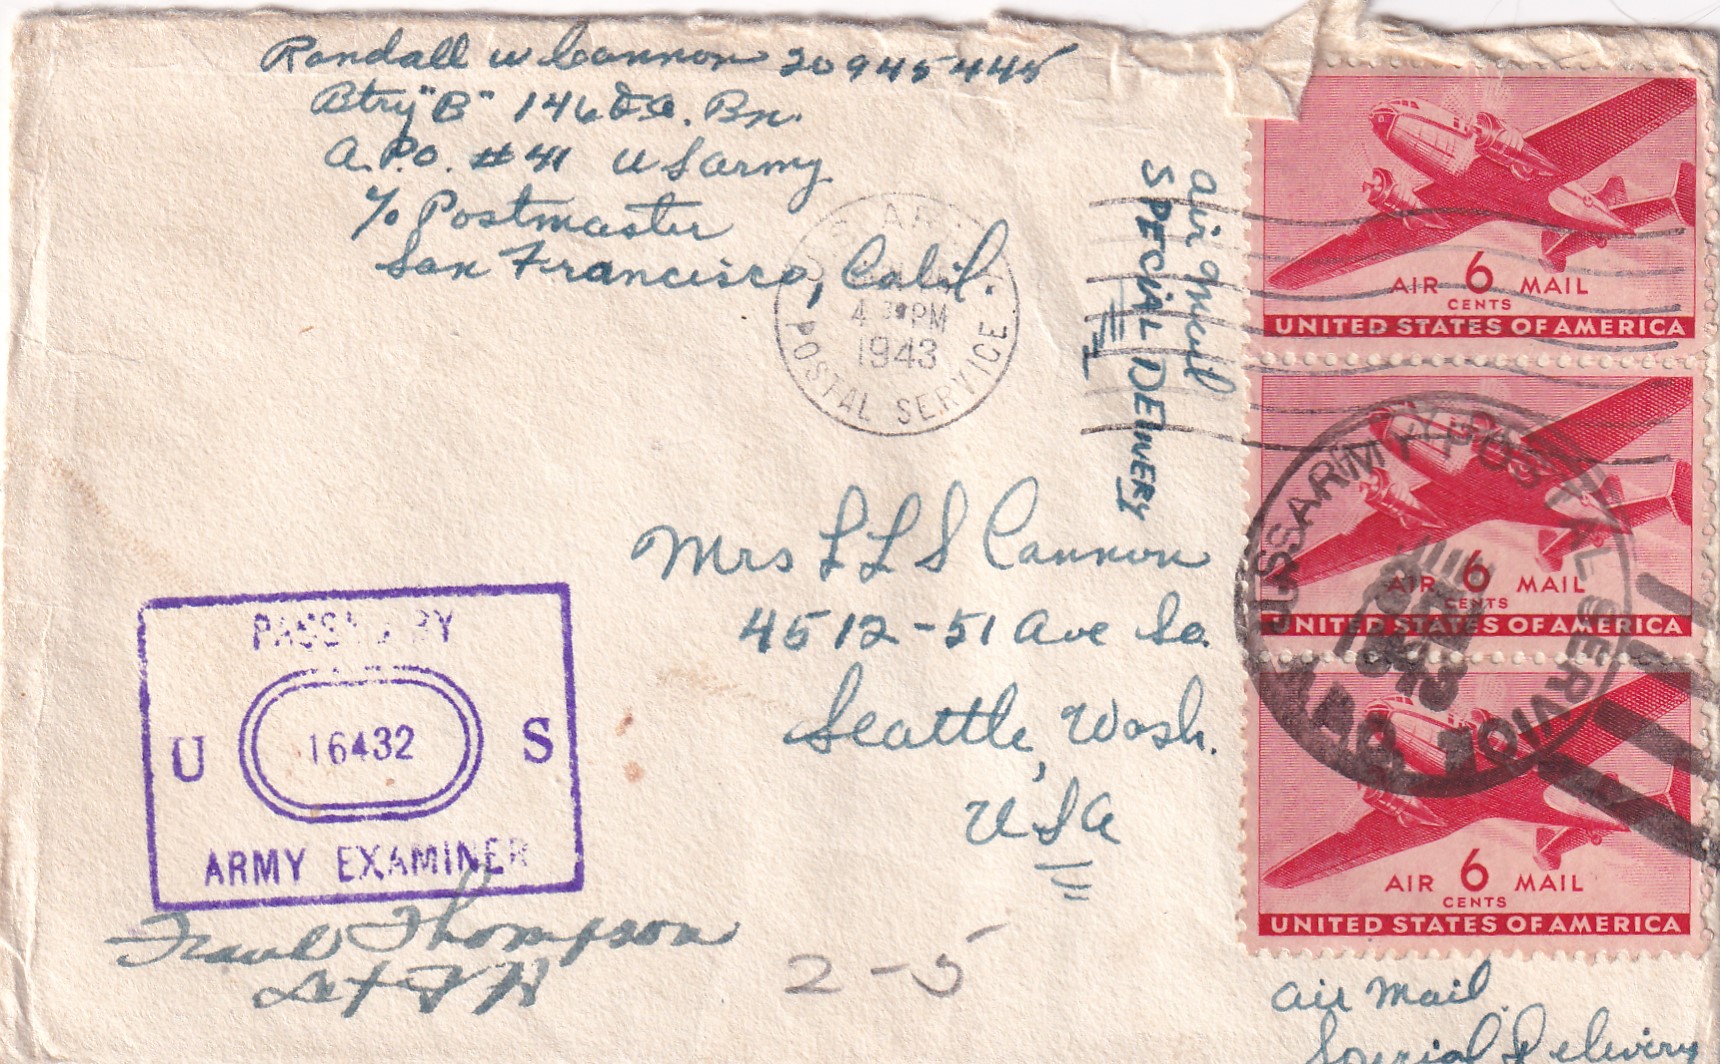 Randall W Cannon 20945445
Btry "B" 146 F.A. Bn.
A.P.O. #41 U S Army
c/o Postmaster
San Francisco, Calif.
4 30 PM
1943
POSTAL SERVICE
Air Mail
SPECIAL DELIVERY
AIR 6 MAIL
CENTS
UNITED STATES OF AMERICA
AIR 6 MAIL
CENTS
UNITED STATES OF AMERICA
AIR 6 MAIL
CENTS
UNITED STATES OF AMERICA
U.S. ARMY POSTAL SERVICE
1943
Mrs L L S Cannon
4512-51 Ave So.
Seattle, Wash.
U S A
PASSED BY
U 16432 S
ARMY EXAMINER
Frank Thompson
2-5
Air Mail
Special Delivery